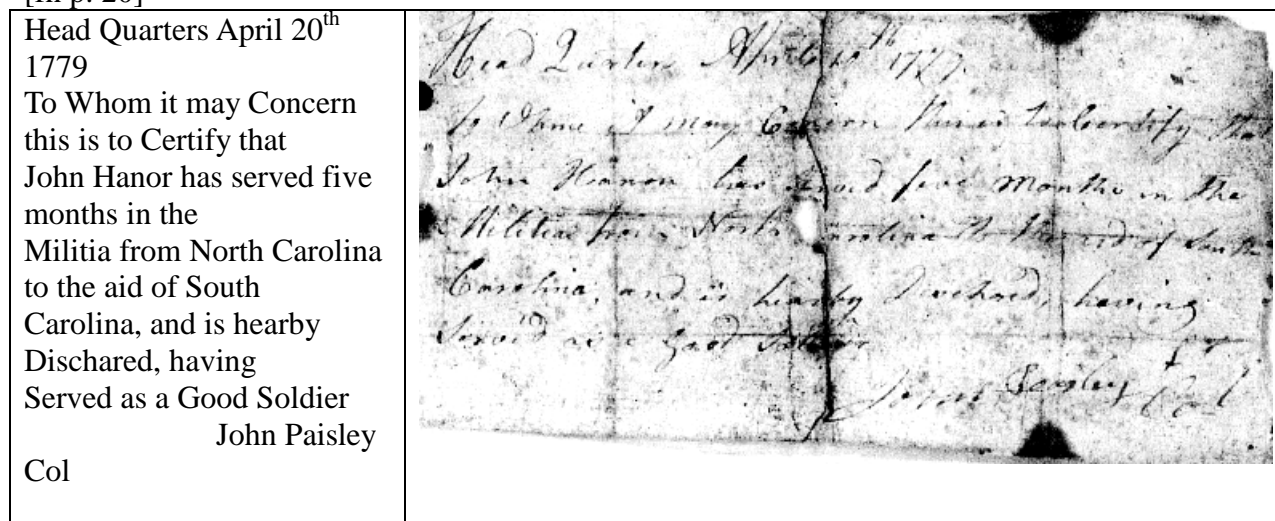 Head Quarters April 20th
1779
To Whom it may Concern
this is to Certify that
John Hanor has served five
months in the
Militia from North Carolina
to the aid of South
Carolina, and is hearby
Dischared, having
Served as a Good Soldier
John Paisley
Col
Head Quarters April 20th 1779
To Whome it may Concern this is to Certify that
John Hanor has served five months in the
Militia from North Carolina to the aid of South
Carolina, and is hearby Dischared, having
Serv'd as a Good Soldier
John Paisley Col